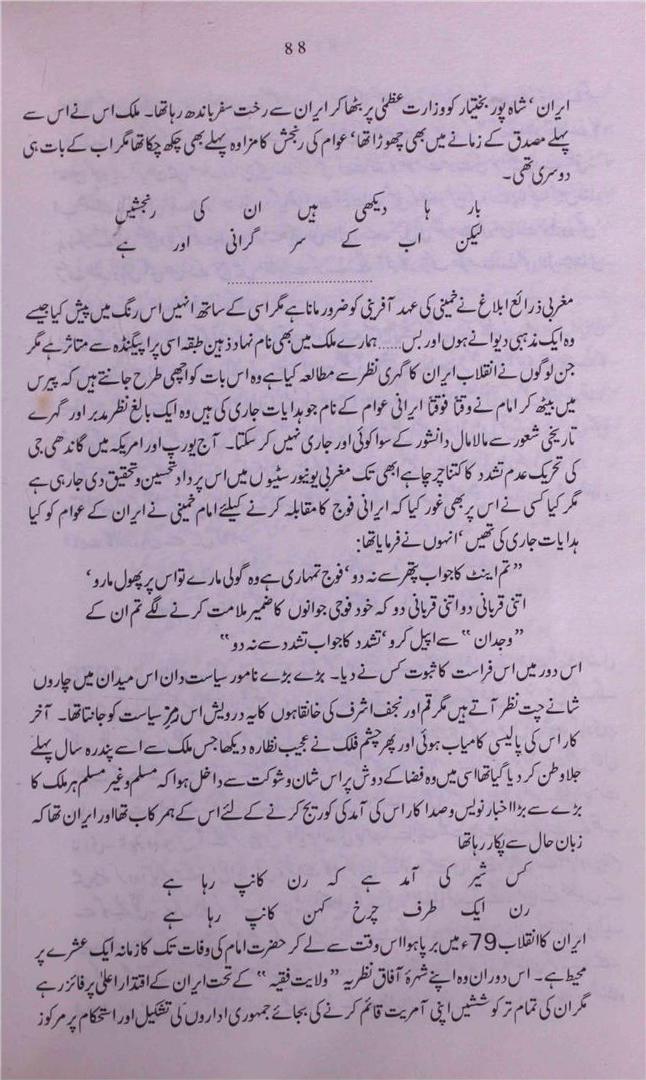 88
ایران ‘ شاہ پور بختیار کو وزارت عظمٰی پر بٹھا کر ایران سے رخت سفر باندھ رہا تھا۔ ملک اس نے اس سے
پہلے مصدق کے زمانے میں بھی چھوڑا تھا ‘ عوام کی رنجش کا مزا وہ پہلے بھی چکھ چکا تھا مگر اب کے بات ہی
دوسری تھی۔
بار ہا دیکھی ہیں ان کی رنجشیں
لیکن اب کے سر گرانی اور ہے
........................................
مغربی ذرائع ابلاغ نے خمینی کی عہد آفرینی کو ضرور مانا ہے مگر اسی کے ساتھ انہیں اس رنگ میں پیش کیا جیسے
وہ ایک مذہبی دیوانے ہوں اور بس...... ہمارے ملک میں بھی نام نہاد ذہین طبقہ اسی پراپیگنڈہ سے متاثر ہے مگر
جن لوگوں نے انقلاب ایران کا گہری نظر سے مطالعہ کیا ہے وہ اس بات کو اچھی طرح جانتے ہیں کہ پیرس
میں بیٹھ کر امام نے وقتاً فوقتاً ایرانی عوام کے نام جو ہدایات جاری کی ہیں وہ ایک بالغ نظر مدبر اور گہرے
تاریخی شعور سے مالا مال دانشور کے سوا کوئی اور جاری نہیں کر سکتا۔ آج یورپ اور امریکہ میں گاندھی جی
کی تحریک عدم تشدد کا کتنا چرچا ہے ابھی تک مغربی یونیورسٹیوں میں اس پر داد تحسین و تحقیق دی جا رہی ہے
مگر کیا کسی نے اس پر بھی غور کیا کہ ایرانی فوج کا مقابلہ کرنے کیلئے امام خمینی نے ایران کے عوام کو کیا
ہدایات جاری کی تھیں ‘ انہوں نے فرمایا تھا:
”تم اینٹ کا جواب پتھر سے نہ دو ‘ فوج تمہاری ہے وہ گولی مارے تو اس پر پھول مارو ‘
اتنی قربانی دو اتنی قربانی دو کہ خود فوجی جوانوں کا ضمیر ملامت کرنے لگے تم ان کے
”وجدان“ سے اپیل کرو ‘ تشدد کا جواب تشدد سے نہ دو“
اس دور میں اس فراست کا ثبوت کس نے دیا۔ بڑے بڑے نامور سیاست دان اس میدان میں چاروں
شانے چت نظر آتے ہیں مگر قم اور نجف اشرف کی خانقاہوں کا یہ درویش اس رمز سیاست کو جانتا تھا۔ آخر
کار اس کی پالیسی کامیاب ہوئی اور پھر چشم فلک نے عجیب نظارہ دیکھا جس ملک سے اسے پندرہ سال پہلے
جلا وطن کر دیا گیا تھا اسی میں وہ فضا کے دوش پر اس شان و شوکت سے داخل ہوا کہ مسلم و غیر مسلم ہر ملک کا
بڑے سے بڑا اخبار نویس و صدا کار اس کی آمد کی کوریج کرنے کے لئے اس کے ہمرکاب تھا اور ایران تھا کہ
زبان حال سے پکار رہا تھا
کس شیر کی آمد ہے کہ رن کانپ رہا ہے
رن ایک طرف چرخ کہن کانپ رہا ہے
ایران کا انقلاب 79ء میں برپا ہوا اس وقت سے لے کر حضرت امام کی وفات تک کا زمانہ ایک عشرے پر
محیط ہے۔ اس دوران وہ اپنے شہرۂ آفاق نظریہ ”ولایت فقیہ“ کے تحت ایران کے اقتدار اعلیٰ پر فائز رہے
مگر ان کی تمام تر کوششیں اپنی آمریت قائم کرنے کی بجائے جمہوری اداروں کی تشکیل اور استحکام پر مرکوز